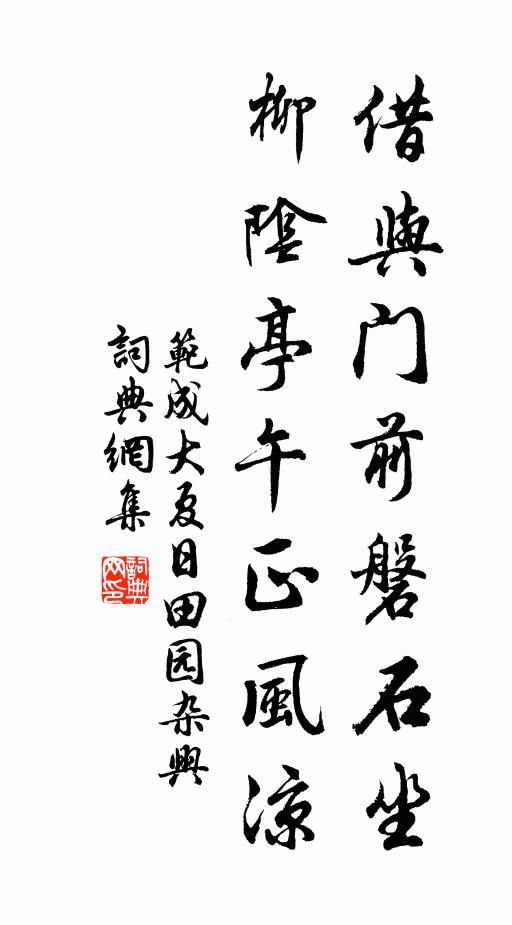 借與門前磐石坐
柳陰亭午正風涼
範成大夏日田园杂興
詞典網集
詞典网印